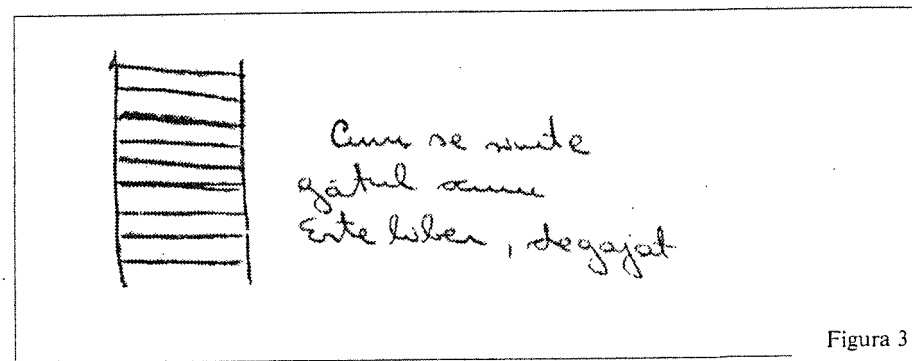 Cum se simte
gâtul acum
Este liber, degajat
Figura 3